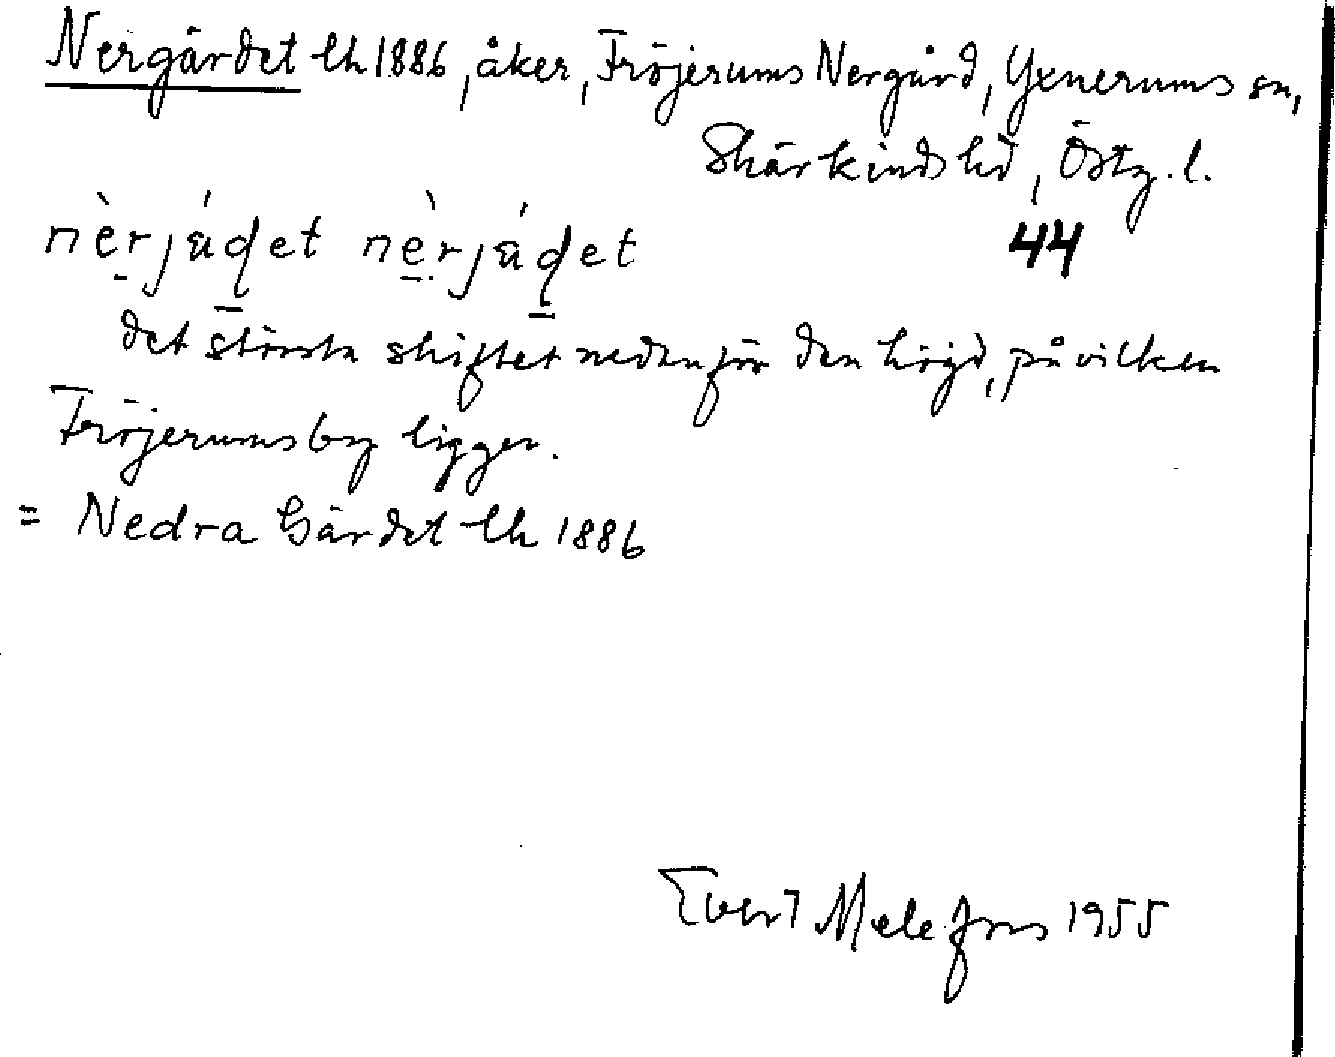 Nergärdet lh 1886, åker, Fröjerums Nergård, Yxnerums sn,
Skärkinds hd, Östg. l.
44
nèrjä́det nèrjä́det
det största skiftet nedanför den höjd, på vilken
Fröjerums by ligger.
= Nedra Gärdet lh 1886
Evert Melefors 1955